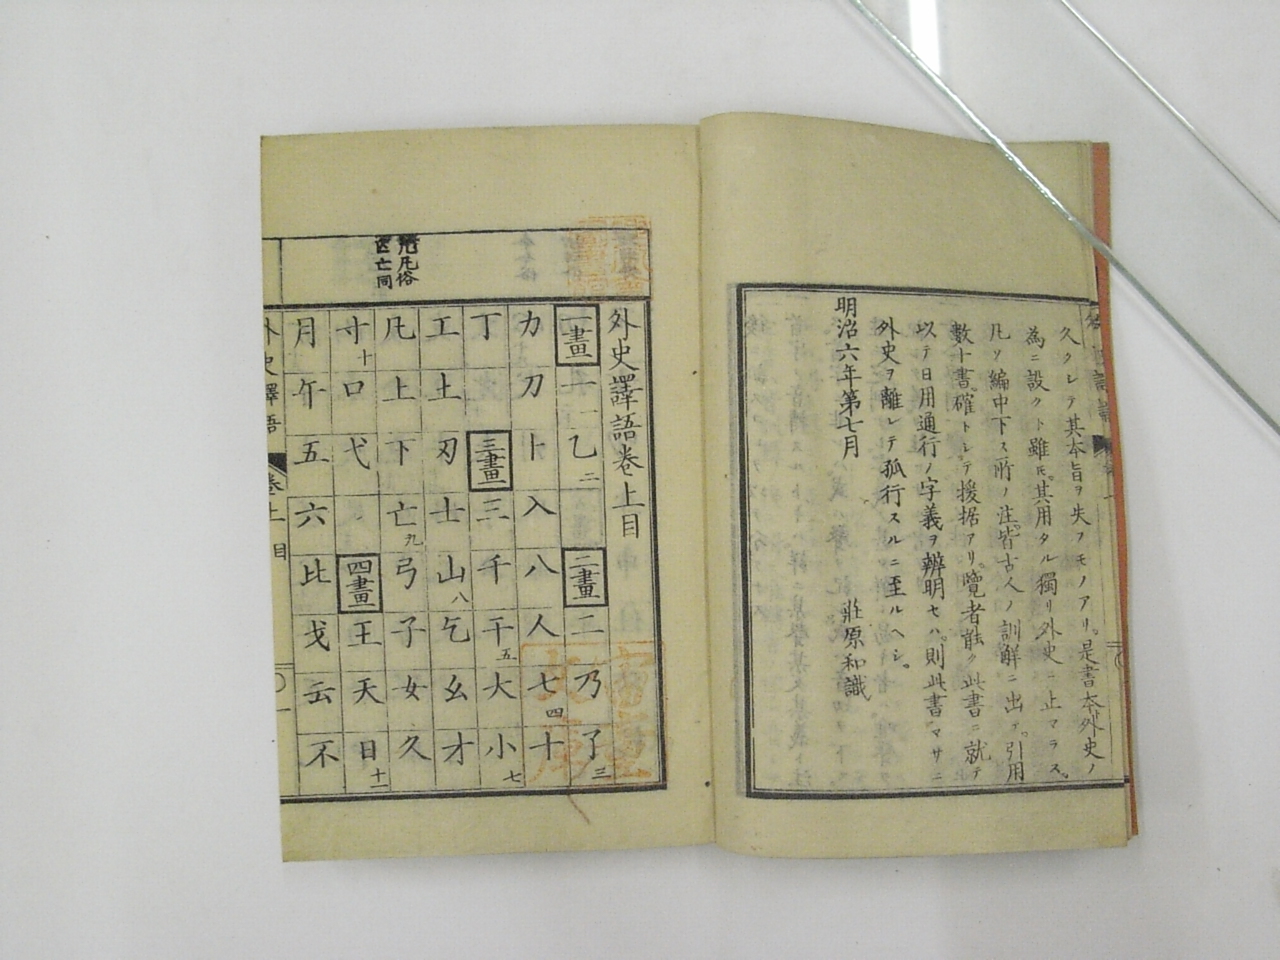 久クレテ其本旨ヲ失フモノアリ。是書本外史ノ
為ニ設クト雖𪜈。其用タル獨リ外史ニ止マラス。
凡ソ編中下ス所ノ注。皆古人ノ訓解ニ出ヅ。引用
數十書。確トシテ援据アリ。覽者能ク此書ニ就テ
以テ日用通行ノ字義ヲ辨明セハ。則此書マサニ
外史ヲ離レテ孤行スルニ至ルヘシ。
明治六年第七月
莊原和識
外史譯語卷上目
一畫 一一 乙二 二畫 二 乃 了三
力 刀 卜 入 八 人 七四 十
丁 三畫 三 千 干五 大 小七
工 土 刃 士 山八 乞 幺 才
凡 上 下 亡九 弓 子 女 久
寸十 口 弋 四畫 王 天 日十一
月 午 五 六 比 戈 云 不
凡俗
亡同
外史譯語 卷上 目 一